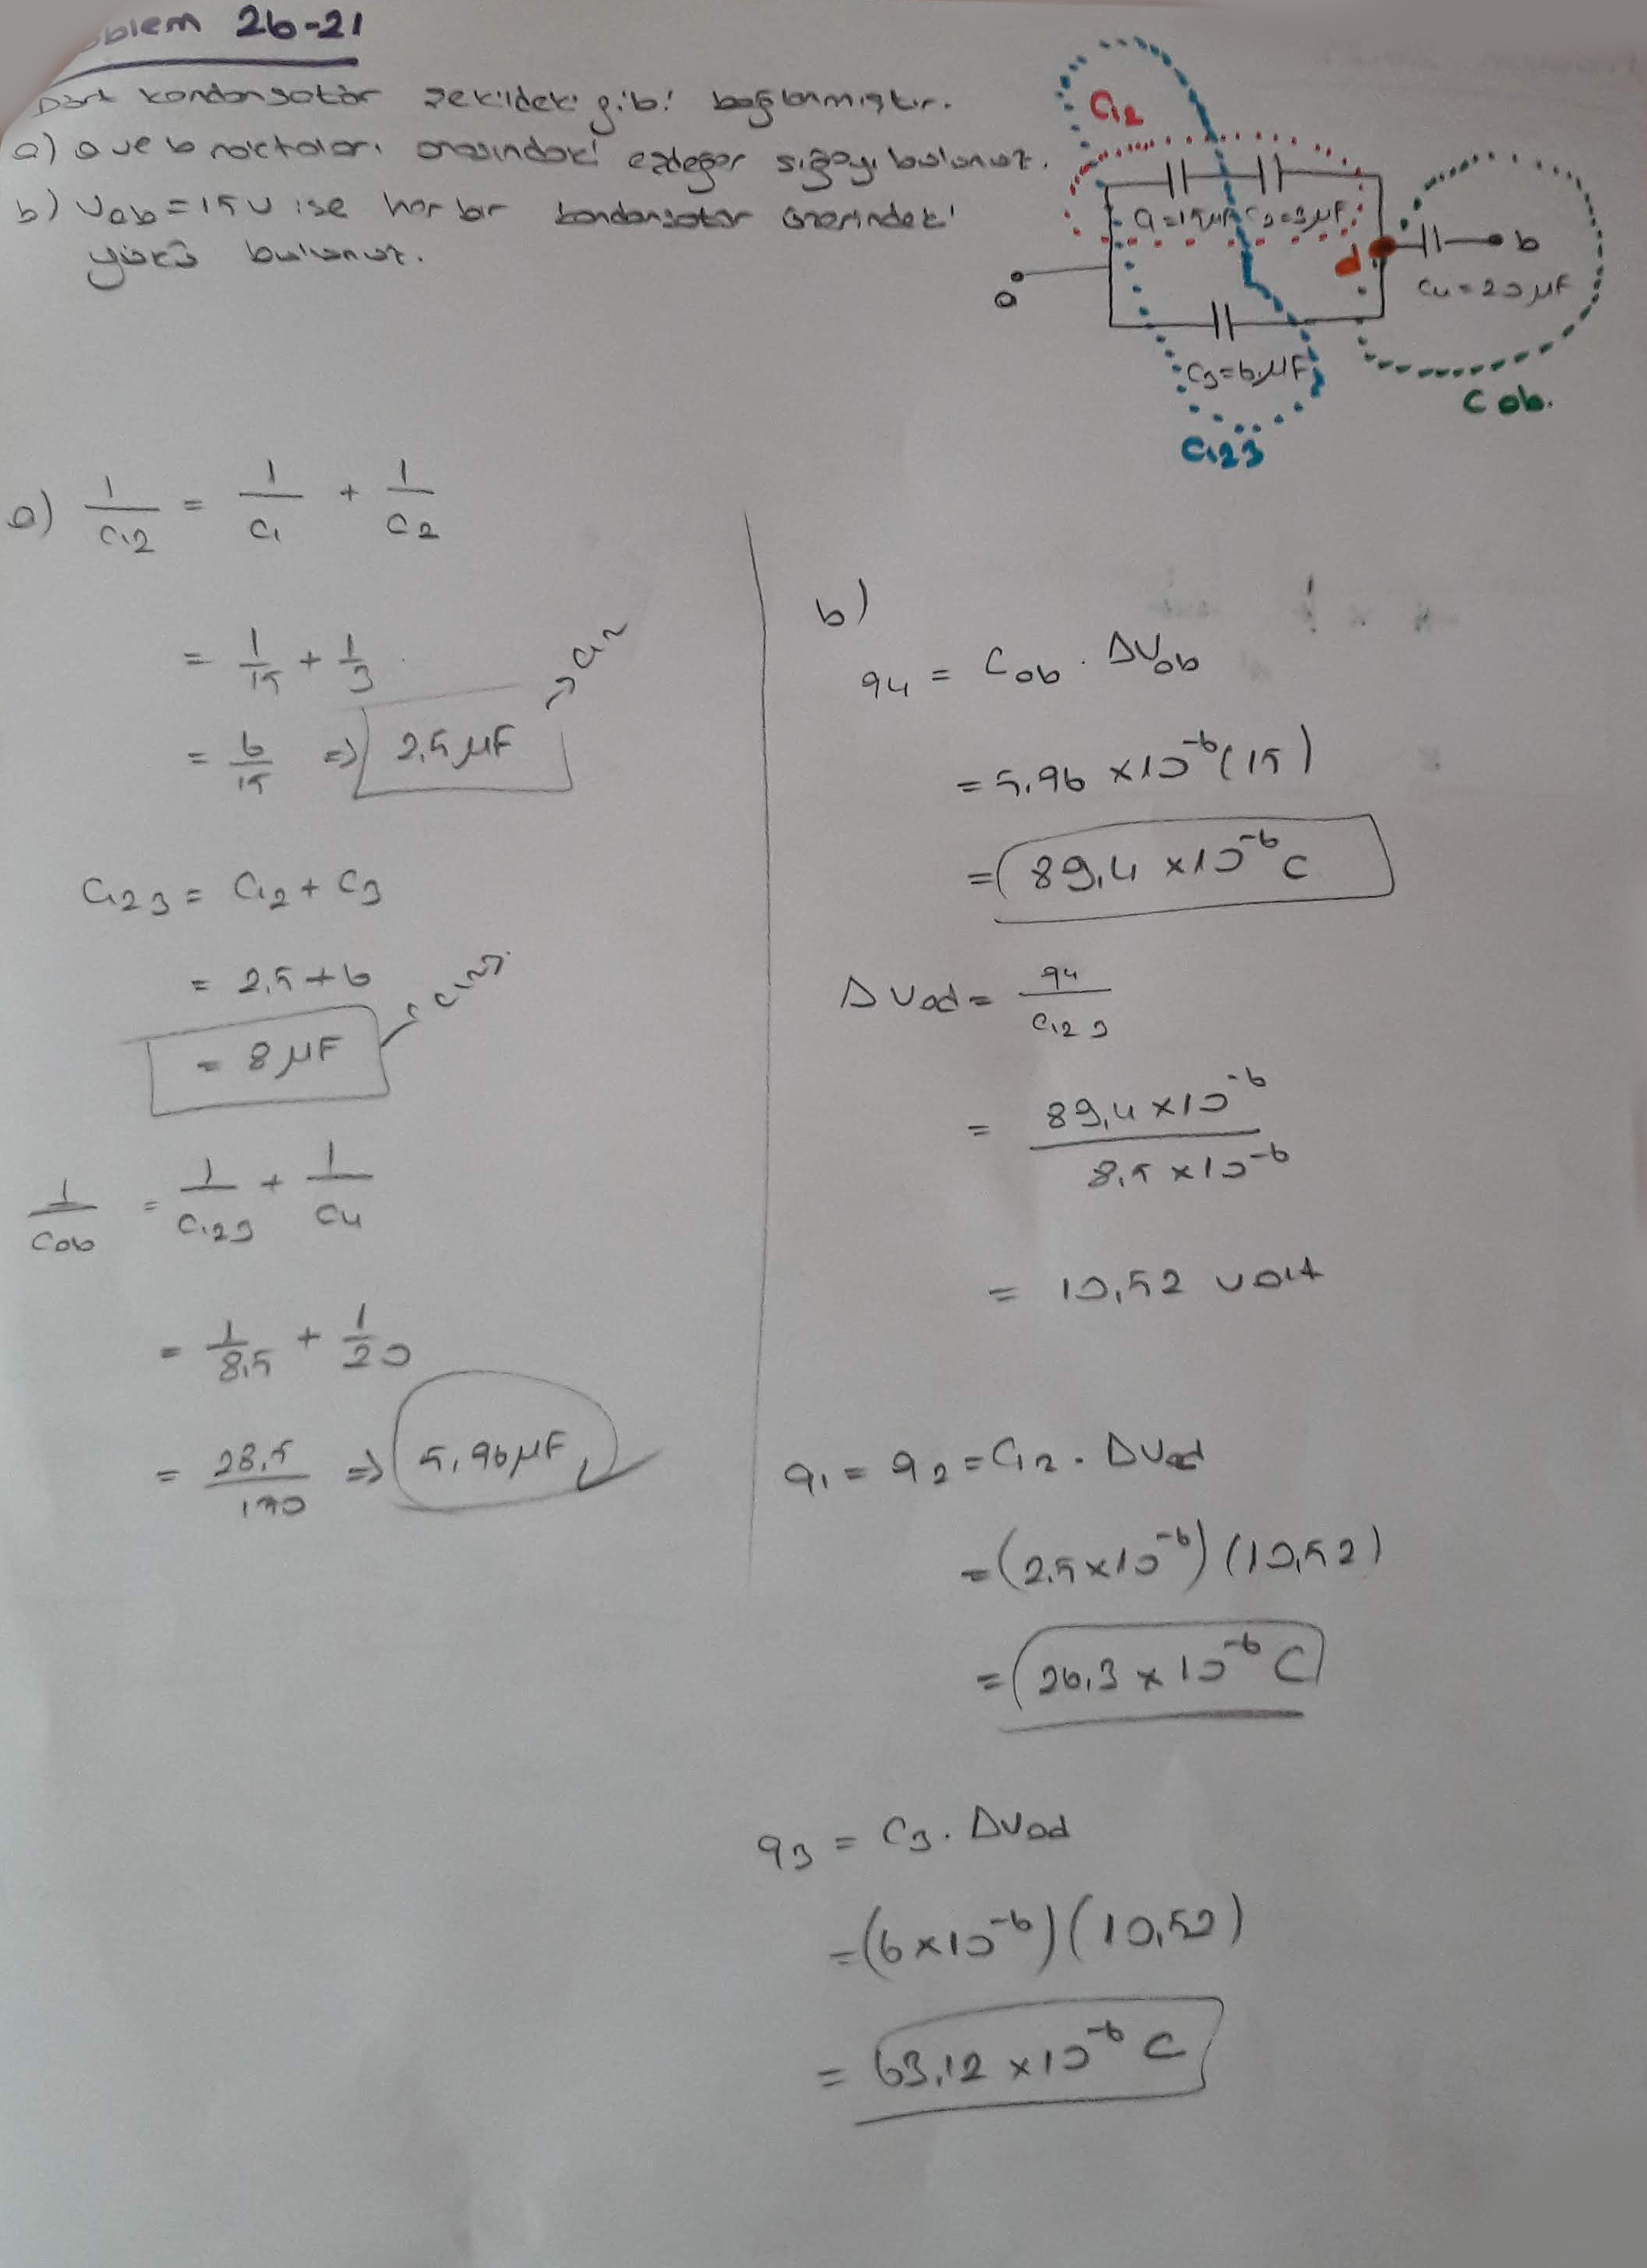 oblem 26-21
Dört kondansatör şekildeki gibi bağlanmıştır.
a) a ve b noktaları arasındaki eşdeğer sığayı bulunuz.
b) Vab = 15V ise her bir kondansatör üzerindeki
yükü bulunuz.
C12
C1=15μF C2=3μF
d
b
a
C4=20μF
C3=6μF
Cab.
C123
a) 1/C12 = 1/C1 + 1/C2
= 1/15 + 1/3
= 6/15 => 2,5 μF → C12
C123 = C12 + C3
= 2,5 + 6
= 8 μF → C123
1/Cab = 1/C123 + 1/C4
= 1/8,5 + 1/20
= 28,5/170 => 5,96 μF
b)
q4 = Cab . ΔVab
= 5,96 x10^-6 (15)
= 89,4 x10^-6 C
ΔVad = q4/C123
= 89,4 x10^-6 / 8,5 x10^-6
= 10,52 volt
q1 = q2 = C12 . ΔVad
= (2,5x10^-6) (10,52)
= 26,3 x 10^-6 C
q3 = C3 . ΔVad
= (6x10^-6) (10,52)
= 63,12 x10^-6 C